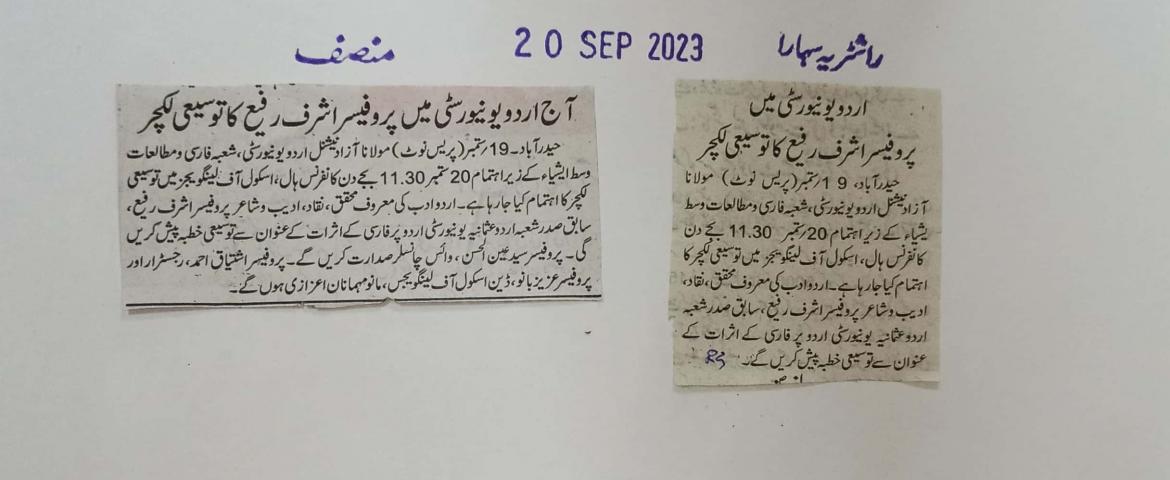 منصف
20 SEP 2023
راشٹریہ سہارا
آج اردو یونیورسٹی میں پروفیسر اشرف رفیع کا توسیعی لکچر
حیدرآباد۔19؍ستمبر(پریس نوٹ) مولانا آزاد نیشنل اردو یونیورسٹی، شعبہ فارسی و مطالعات
وسط ایشیاء کے زیر اہتمام 20 ستمبر 11.30 بجے دن کانفرنس ہال، اسکول آف لینگویجز میں توسیعی
لکچر کا اہتمام کیا جارہا ہے۔ اردو ادب کی معروف محقق، نقاد، ادیب و شاعر پروفیسر اشرف رفیع،
سابق صدر شعبہ اردو عثمانیہ یونیورسٹی اردو پر فارسی کے اثرات کے عنوان سے توسیعی خطبہ پیش کریں
گی۔ پروفیسر سید عین الحسن، وائس چانسلر صدارت کریں گے۔ پروفیسر اشتیاق احمد، رجسٹرار اور
پروفیسر عزیز بانو، ڈین اسکول آف لینگویجس، مانو مہمانان اعزازی ہوں گے۔
اردو یونیورسٹی میں
پروفیسر اشرف رفیع کا توسیعی لکچر
حیدرآباد، 19؍ستمبر (پریس نوٹ) مولانا
آزاد نیشنل اردو یونیورسٹی، شعبہ فارسی و مطالعات وسط
یشیاء کے زیر اہتمام 20؍ستمبر 11.30 بجے دن
کانفرنس ہال، اسکول آف لینگویجز میں توسیعی لکچر کا
اہتمام کیا جارہا ہے۔ اردو ادب کی معروف محقق، نقاد،
ادیب و شاعر پروفیسر اشرف رفیع، سابق صدر شعبہ
اردو عثمانیہ یونیورسٹی اردو پر فارسی کے اثرات کے
عنوان سے توسیعی خطبہ پیش کریں گے۔